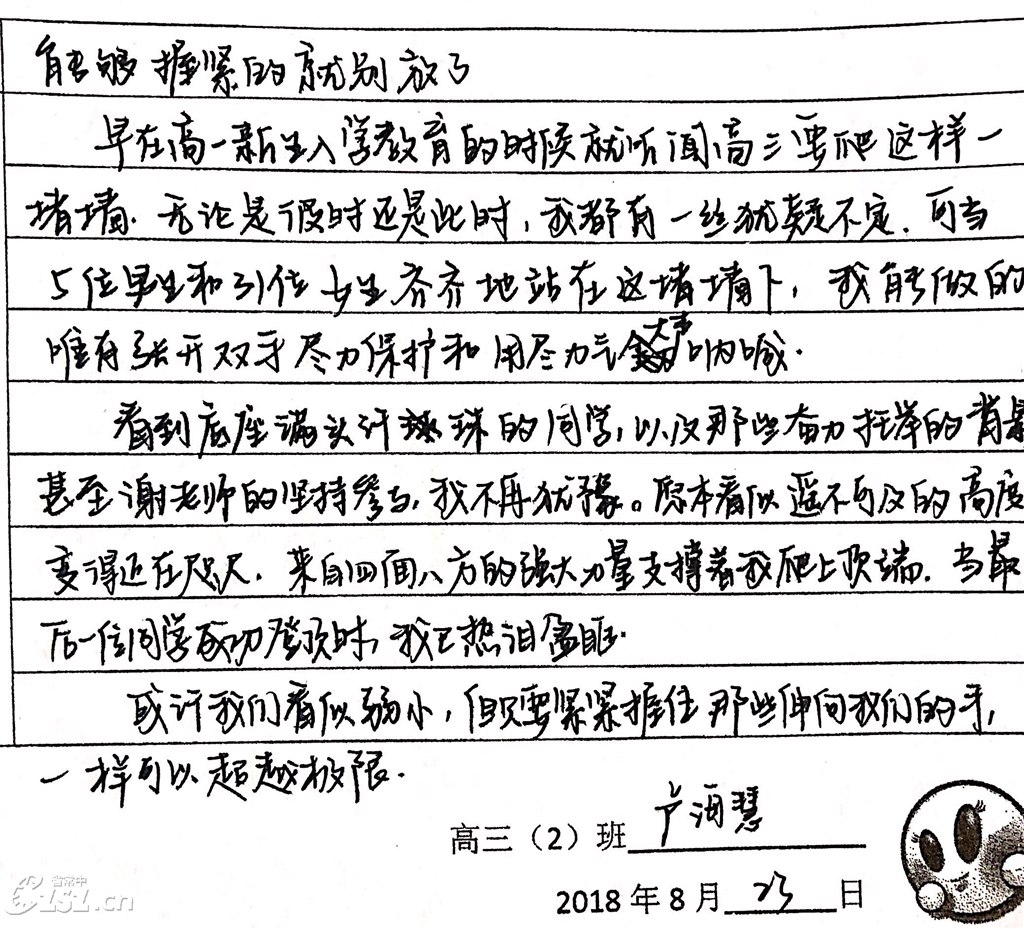 能够握紧的就别放了
早在高一新生入学教育的时候就听闻高三要爬这样一
堵墙.无论是彼时还是此时,我都有一丝犹疑不定.可当
5位男生和31位女生齐齐地站在这堵墙下,我能做的
唯有张开双手尽力保护和用尽力气大声呐喊.
看到底座满头汗珠的同学,以及那些奋力托举的背景
甚至谢老师的坚持参与,我不再犹豫。原本看似遥不可及的高度
变得近在咫尺.来自四面八方的强大力量支撑着我爬上顶端.当最
后一位同学成功登顶时,我已热泪盈眶.
或许我们看似弱小,但只要紧紧握住那些伸向我们的手,
一样可以超越极限.
高三(2)班 卢海慧
2018年8月23日
省常中
CZ1Z1.cn